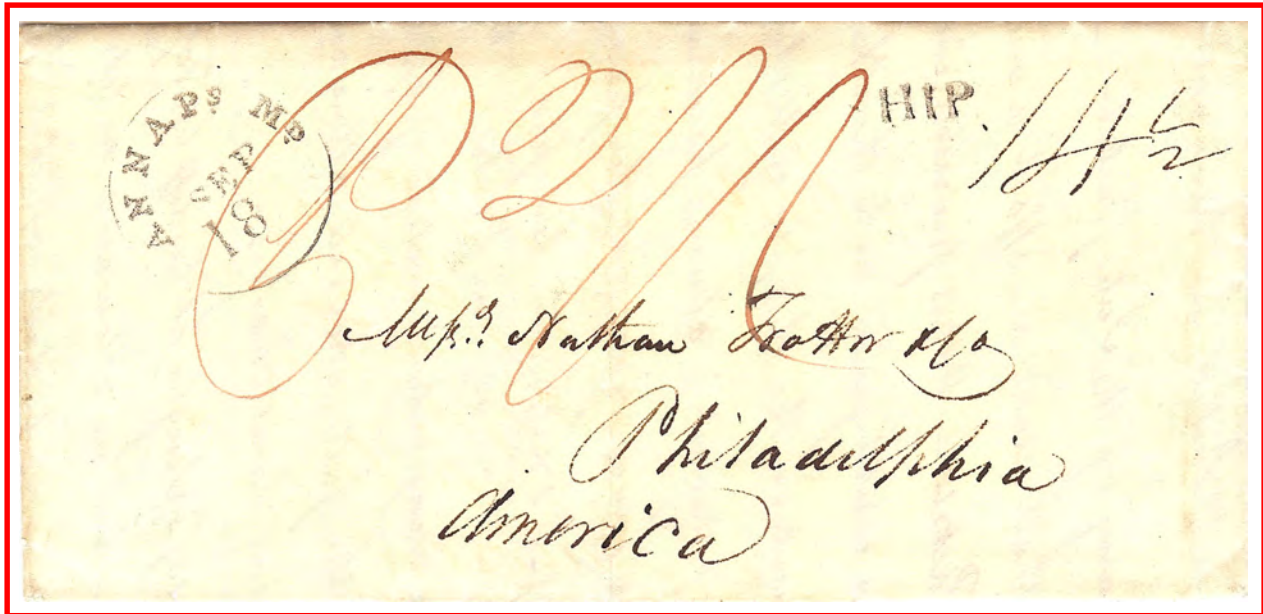 ANNAPS MD
SEP
18
HIP
14½
Messrs Nathan Trotter & Co
Philadelphia
America